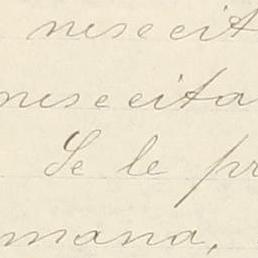 nesecit
nesecita
Se le pr
mana,